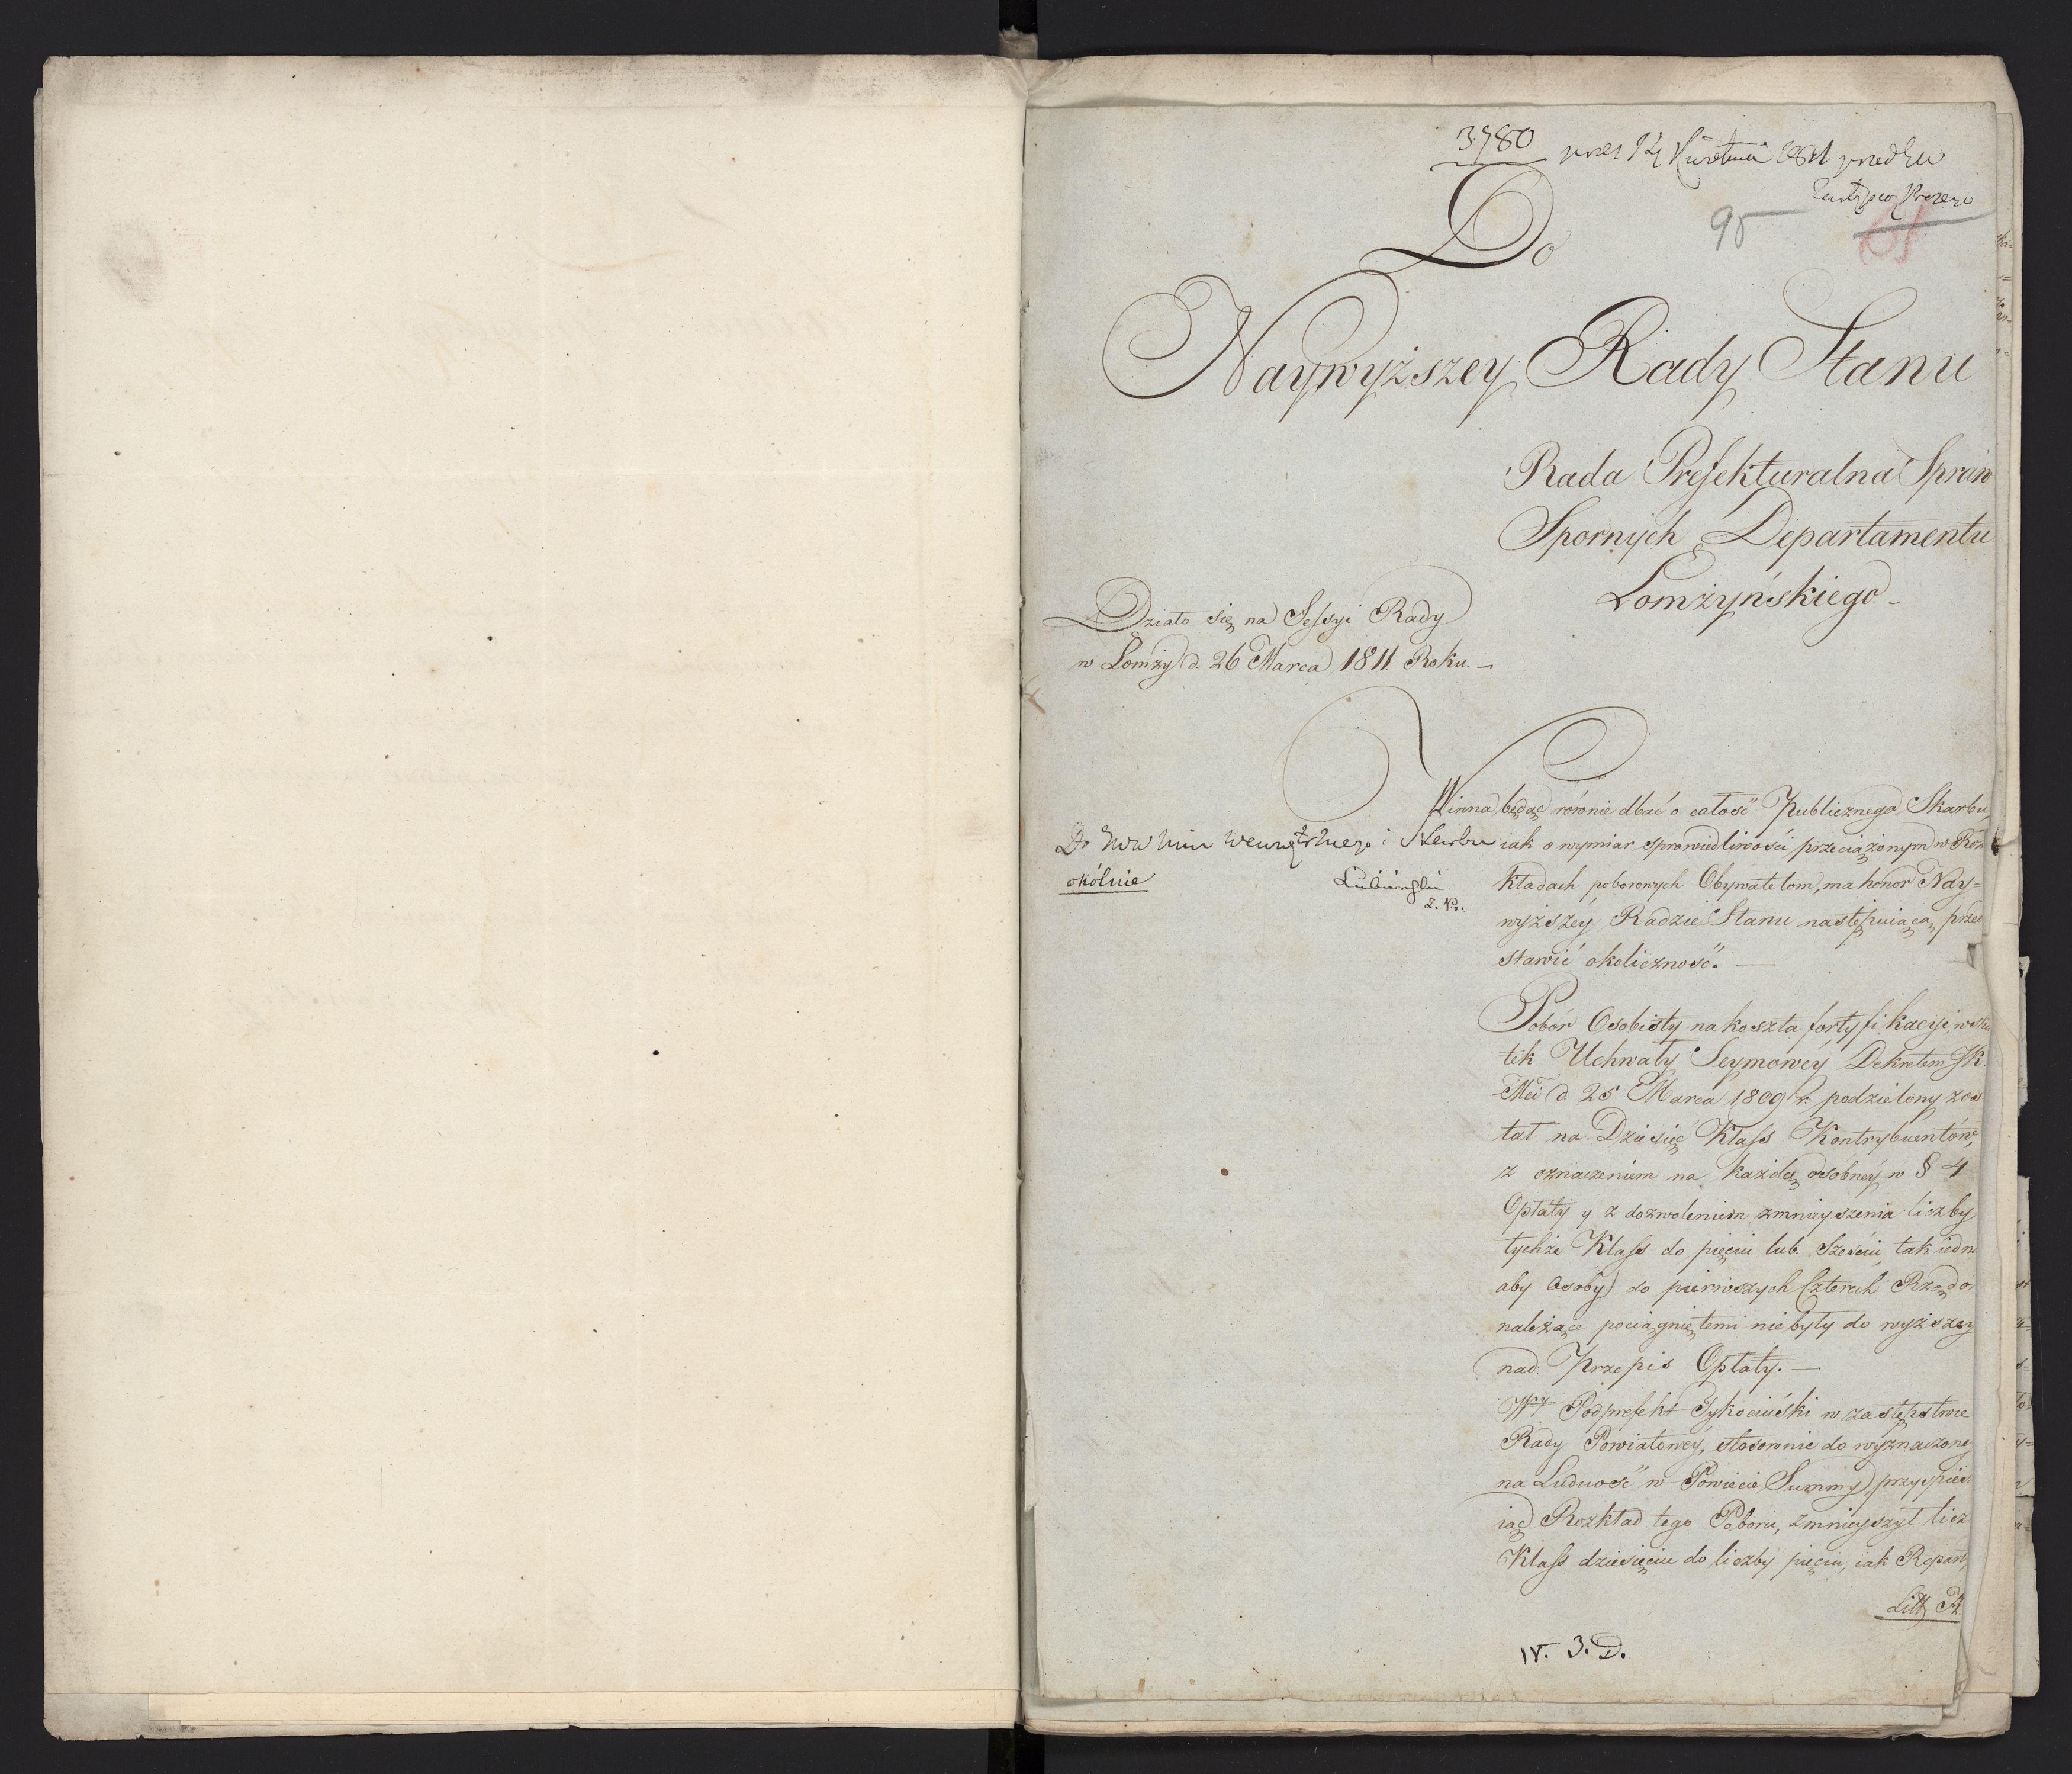 3780 prez 14 Kwietnia 1811
Zastępcę Prezesa
95
61
Do
Naywyższey Rady Stanu
Rada Prefekturalna Spraw
Spornych Departamentu
Łomżyńskiego.
Działo się na Sessyi Rady
w Łomży d. 26 Marca 1811 Roku.
Winna będąc równie dbać o całość Publicznego Skarbu,
iak o wymiar sprawiedliwości przeciążonym w Roz
kładach poborowych Obywatelom, ma honor Nay=
wyższey Radzie Stanu następuiącą przed
stawić okoliczność.
Do Min Wewnętrznego i Skarbu
okólnie
Lubieński
Z. Pr.
Pobór Osobisty na koszta fortyfikacyi, wsku
tek Uchwały Seymowey Dekretem JK
Mci d 25 Marca 1809 r. podzielony zos
tał na Dziesięć Klass Kontrybuentów,
z oznaczeniem na każdą osóbney w § 4
Opłaty y z dozwoleniem zmnieyszenia liczby
tychże Klass do pięciu lub sześciu, tak iedn
aby Osoby do pierwszych Czterech Rzędo
należące pociągniętemi nie były do wyższey
nad Przepis Opłaty.
Wy Podprefekt Tykociński w zastępstwie
Rady Powiatowey, stosownie do wyznaczoney
na Ludność w Powiecie Summy, przyspies
iąc Rozkład tego Poboru, zmnieyszył licz
Klass dziesięciu do liczby pięciu, iak Repart,
Litt A.
IV. 3. D.